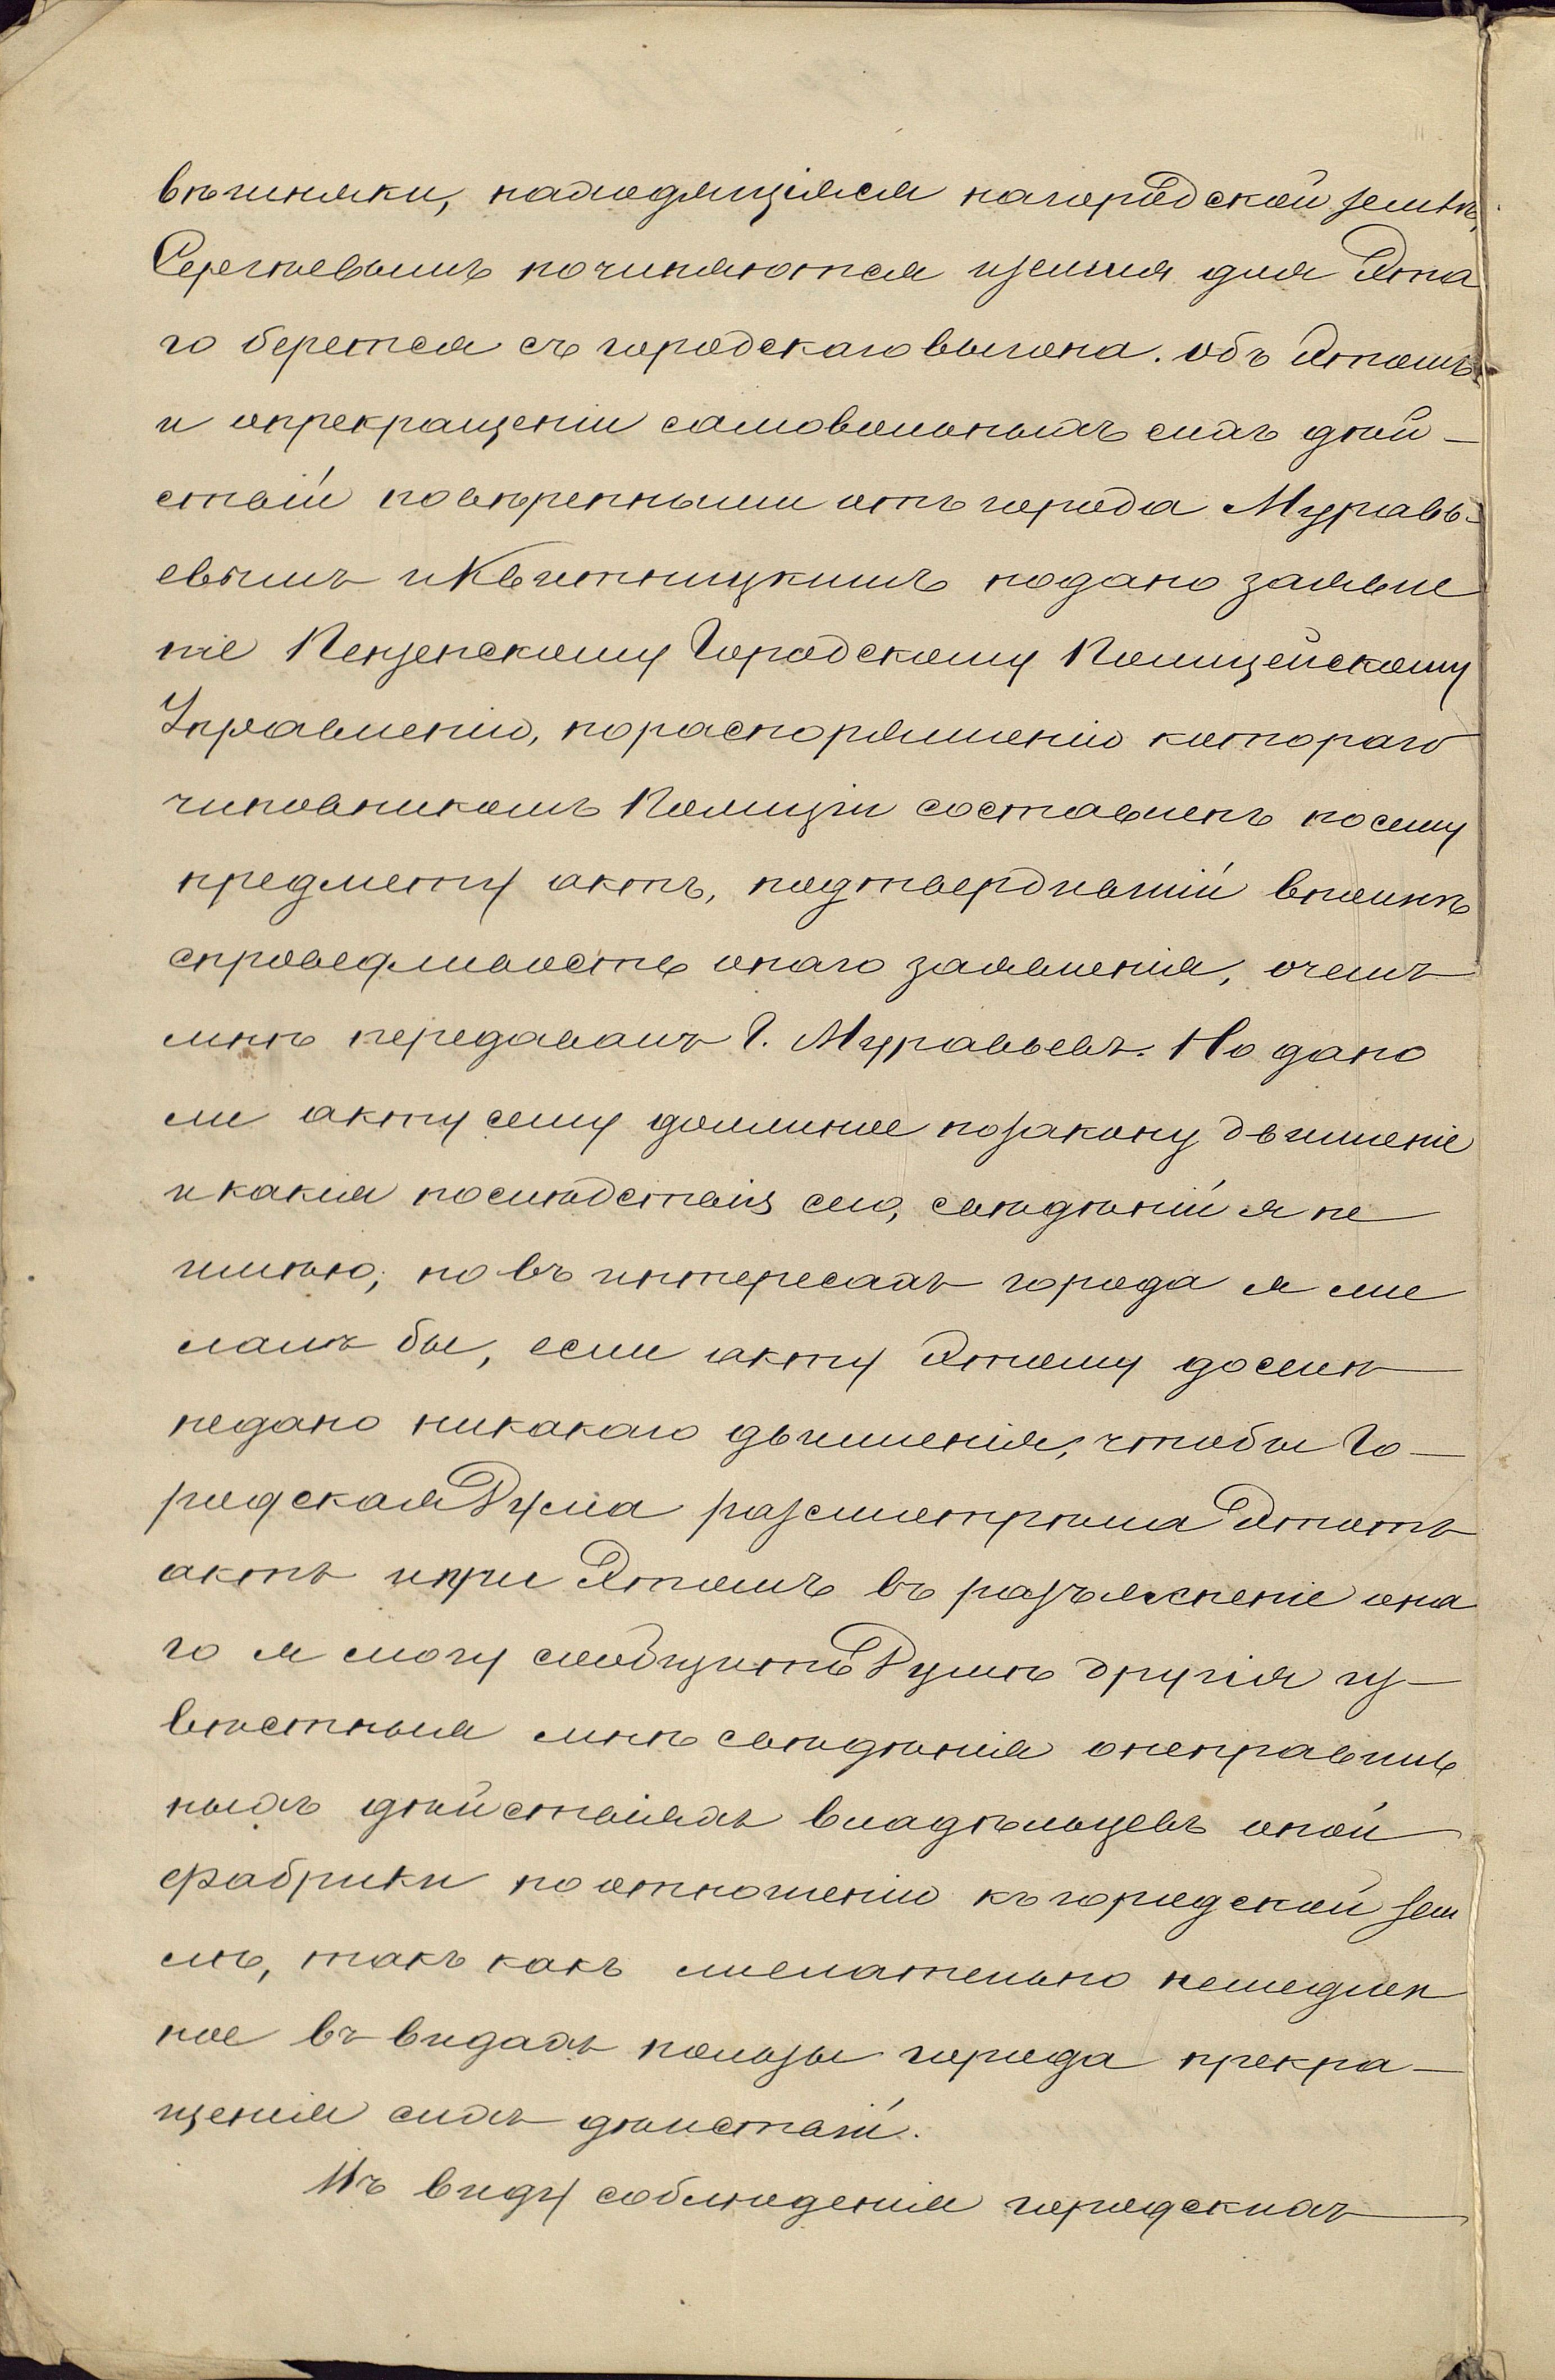 вѣшняки, находящіяся нагородской землѣ,
Сергѣевымъ починяются и земля для Эта
го берется съ городскаго выгона. Объ Этомъ
и опрекращеніи самовольныхъ сихъ дѣй-
ствій повѣренными отъ города Муравь-
евымъ и Квитницкимъ подано заявле
ніе Пензенскому Городскому Полицейскому
Управленію, пораспоряженію котораго
чиновникомъ Полиціи составленъ посему
предмету актъ, подтвердившій вполнѣ
справедливость онаго заявленія, очемъ
мнѣ передавалъ Г. Муравьевъ. Но дано
ли акту сему должное позакону движеніе
и какія послѣдствія его, свѣдѣній я не
имѣю; но въ интересахъ города я же
лалъ бы, если акту Этому доселѣ
недано никакаго движенія, чтобы Го-
родская Дума разсмотрѣла Этотъ
актъ ипри Этомъ въ разъясненіе она
го я могу сообщить Думѣ другія из-
вѣстныя мнѣ свѣдѣнія онеправиль
ныхъ дѣйствіяхъ владѣльцевъ оной
фабрики поотношенію къ городской зем
лѣ, такъ какъ желательно немедлен
ное въ видахъ пользы города прекра-
щенія сихъ дѣйствій.
Въ виду соблюденія городскихъ